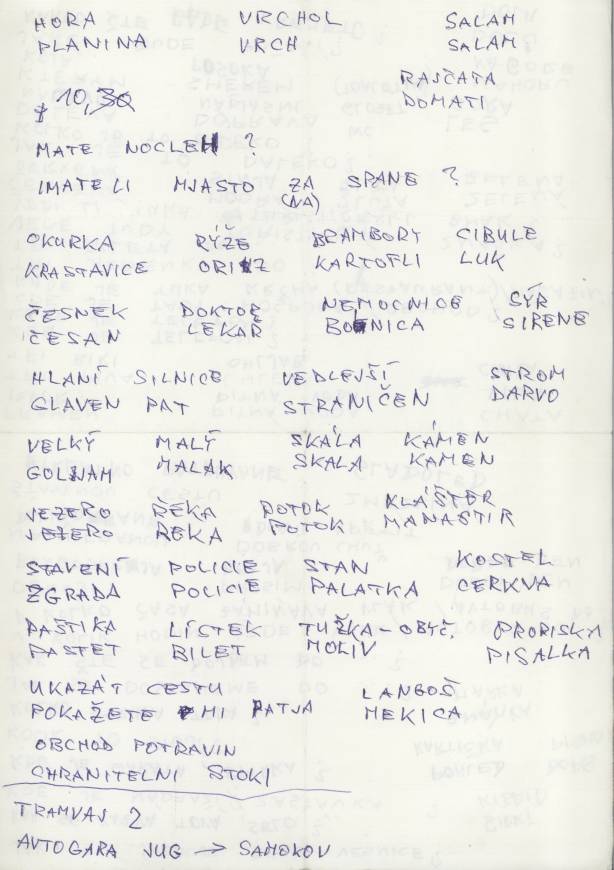 HORA VRCHOL SALAM
PLANINA VRCH SALAM
RAJČATA
DOMATI
10,30
MATE NOCLEH ?
IMATE LI MJASTO ZA SPANE ?
(NA)
OKURKA RÝŽE BRAMBORY CIBULE
KRASTAVICE ORIZ KARTOFLI LUK
ČESNEK DOKTOR NEMOCNICE SÝR
ČESAN LEKAR BOLNICA SIRENE
HLANÍ SILNICE VEDLEJŠÍ STROM
GLAVEN PAT STRANIČEN DARVO
VELKÝ MALÝ SKÁLA KÁMEN
GOLJAM MALAK SKALA KAMEN
JEZERO ŘEKA POTOK KLÁŠTER
JEZERO REKA POTOK MANASTIR
STAVENÍ POLICIE STAN KOSTEL
ZGRADA POLICIE PALATKA CERKVA
PAŠTIKA LÍSTEK TUŽKA - OBYČ. PROPISKA
PASTET BILET MOLIV PISALKA
UKAZÁT CESTU LANGOŠ
POKAŽETE MI PATJA MEKICA
OBCHOD POTRAVIN
CHRANITELNI STOKI
TRAMVAJ 2
AVTOGARA JUG → SAMOKOV